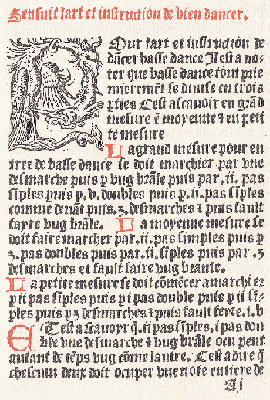 Sensuit lart et instruction de bien dancer.
Our lart et instruction de
dãcer basse dance Il est a no-
ter que basse dance tout pre
mierement se diuise en trois
pties Cest ascauoir en grãd
mesure ẽ moyenne ẽ en peti
te mesure
La grand mesure pour en
tree de basse dance se doit marchier par vne
desmarche puis p vng brãle puis par .ii. pas
sĩples puis p .v. doubles puis p .ii. pas sĩples
comme deuãt puis .3. desmarches ẽ puis fault
fayre vng brãle. La moyenne mesure se
doit faire marcher par .ii. pas simples puis p
.3. pas doubles puis par .ii. siples puis par .3
desmarches et fault faire vng branle.
La petite mesure se doit cõmẽcer a marchier
p ii pas siples puis p i pas double puis p ii si-
ples puis p 3 desmarches ẽ puis fault ferre .i. b
Cest a scauoyr q̃ .ii pas siples, i pas dou
ble vne desmarche ẽ vng brãle ocu pent
autant de tẽps vng cõme lautre. Cest a dire q̃
chescun deux doit ocuper vne note entiere de
A i